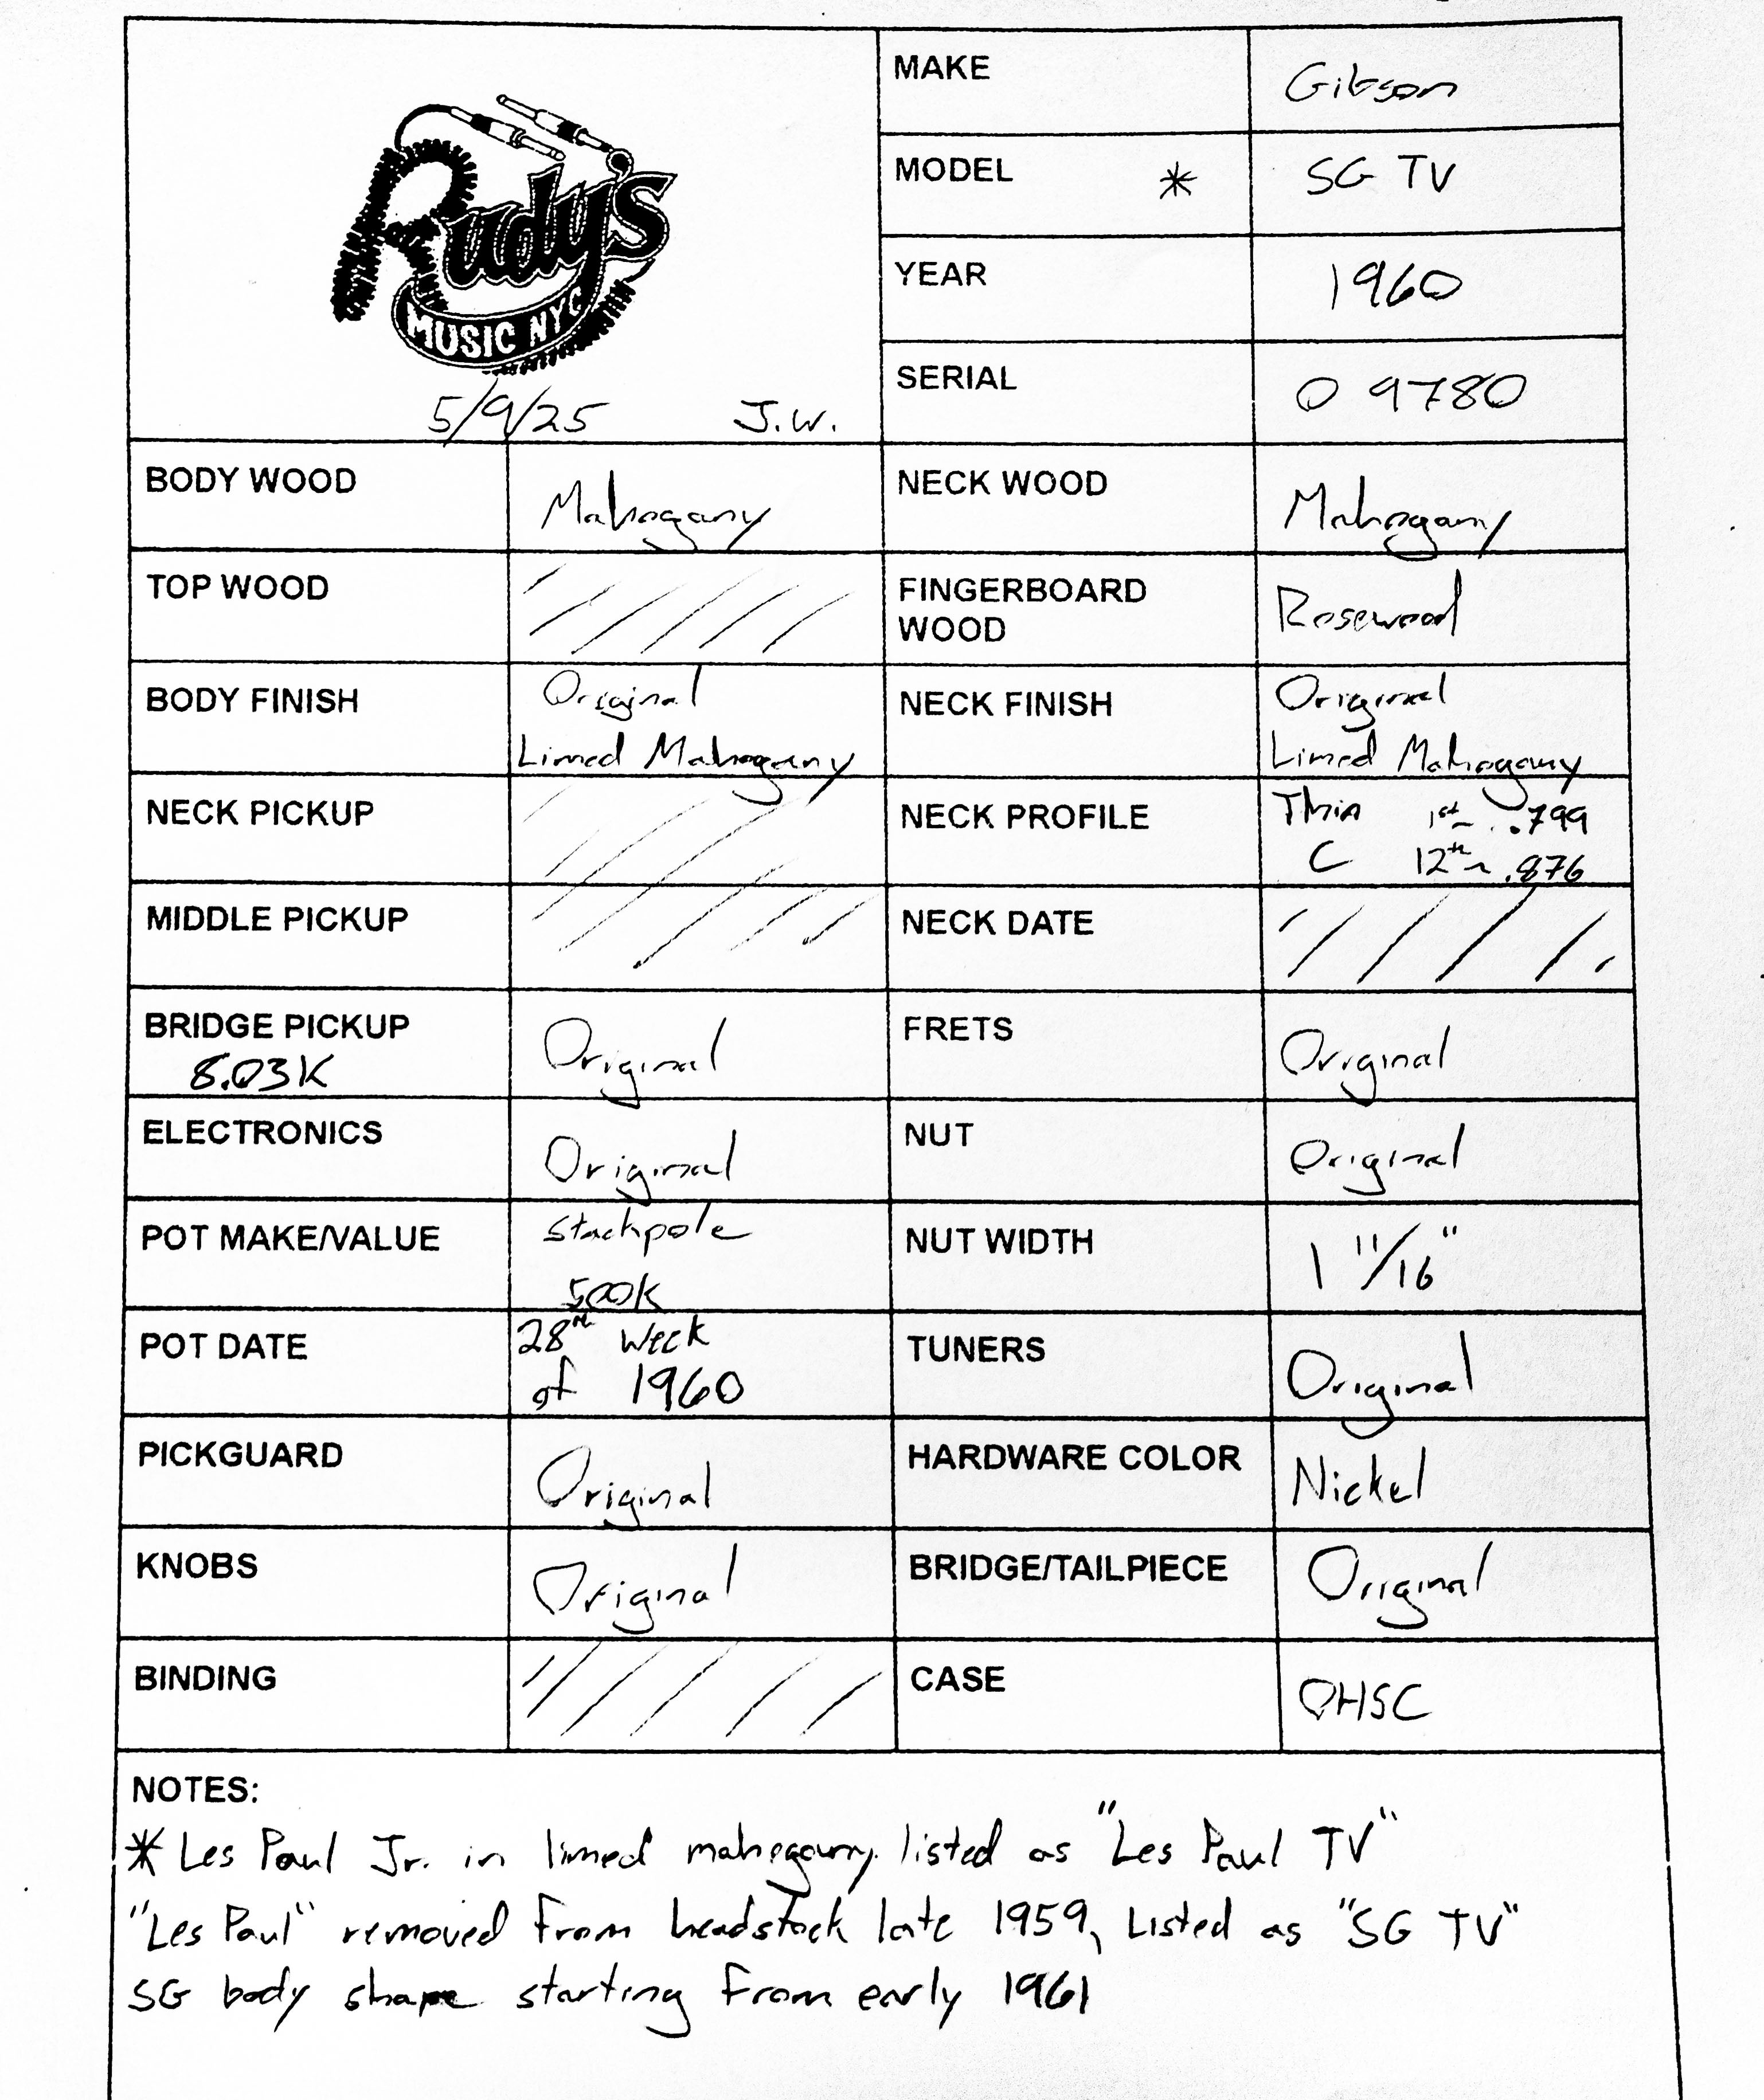 Rudy's
MUSIC NYC
5/9/25 J.W.
MAKE Gibson
MODEL * SG TV
YEAR 1960
SERIAL 0 9780
BODY WOOD Mahogany
NECK WOOD Mahogany
TOP WOOD
FINGERBOARD
WOOD
Rosewood
BODY FINISH
Original
Limed Mahogany
NECK FINISH
Original
Limed Mahogany
NECK PICKUP
NECK PROFILE
Thin 1st ~ .799
C 12th ~ .876
MIDDLE PICKUP
NECK DATE
BRIDGE PICKUP
8.03K
Original
FRETS Original
ELECTRONICS Original
NUT Original
POT MAKE/VALUE
Stackpole
500K
NUT WIDTH 1 11/16"
POT DATE
28th week
of 1960
TUNERS Original
PICKGUARD Original
HARDWARE COLOR Nickel
KNOBS Original
BRIDGE/TAILPIECE Original
BINDING
CASE OHSC
NOTES:
* Les Paul Jr. in limed mahogany listed as "Les Paul TV"
"Les Paul" removed from headstock late 1959, Listed as "SG TV"
SG body shape starting from early 1961